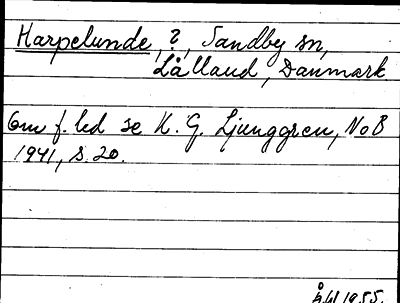 Harpelunde, ?, Sandby sn,
Lålland, Danmark
Om f. led se K. G. Ljunggren, NoB
1941, s. 20.
1955.